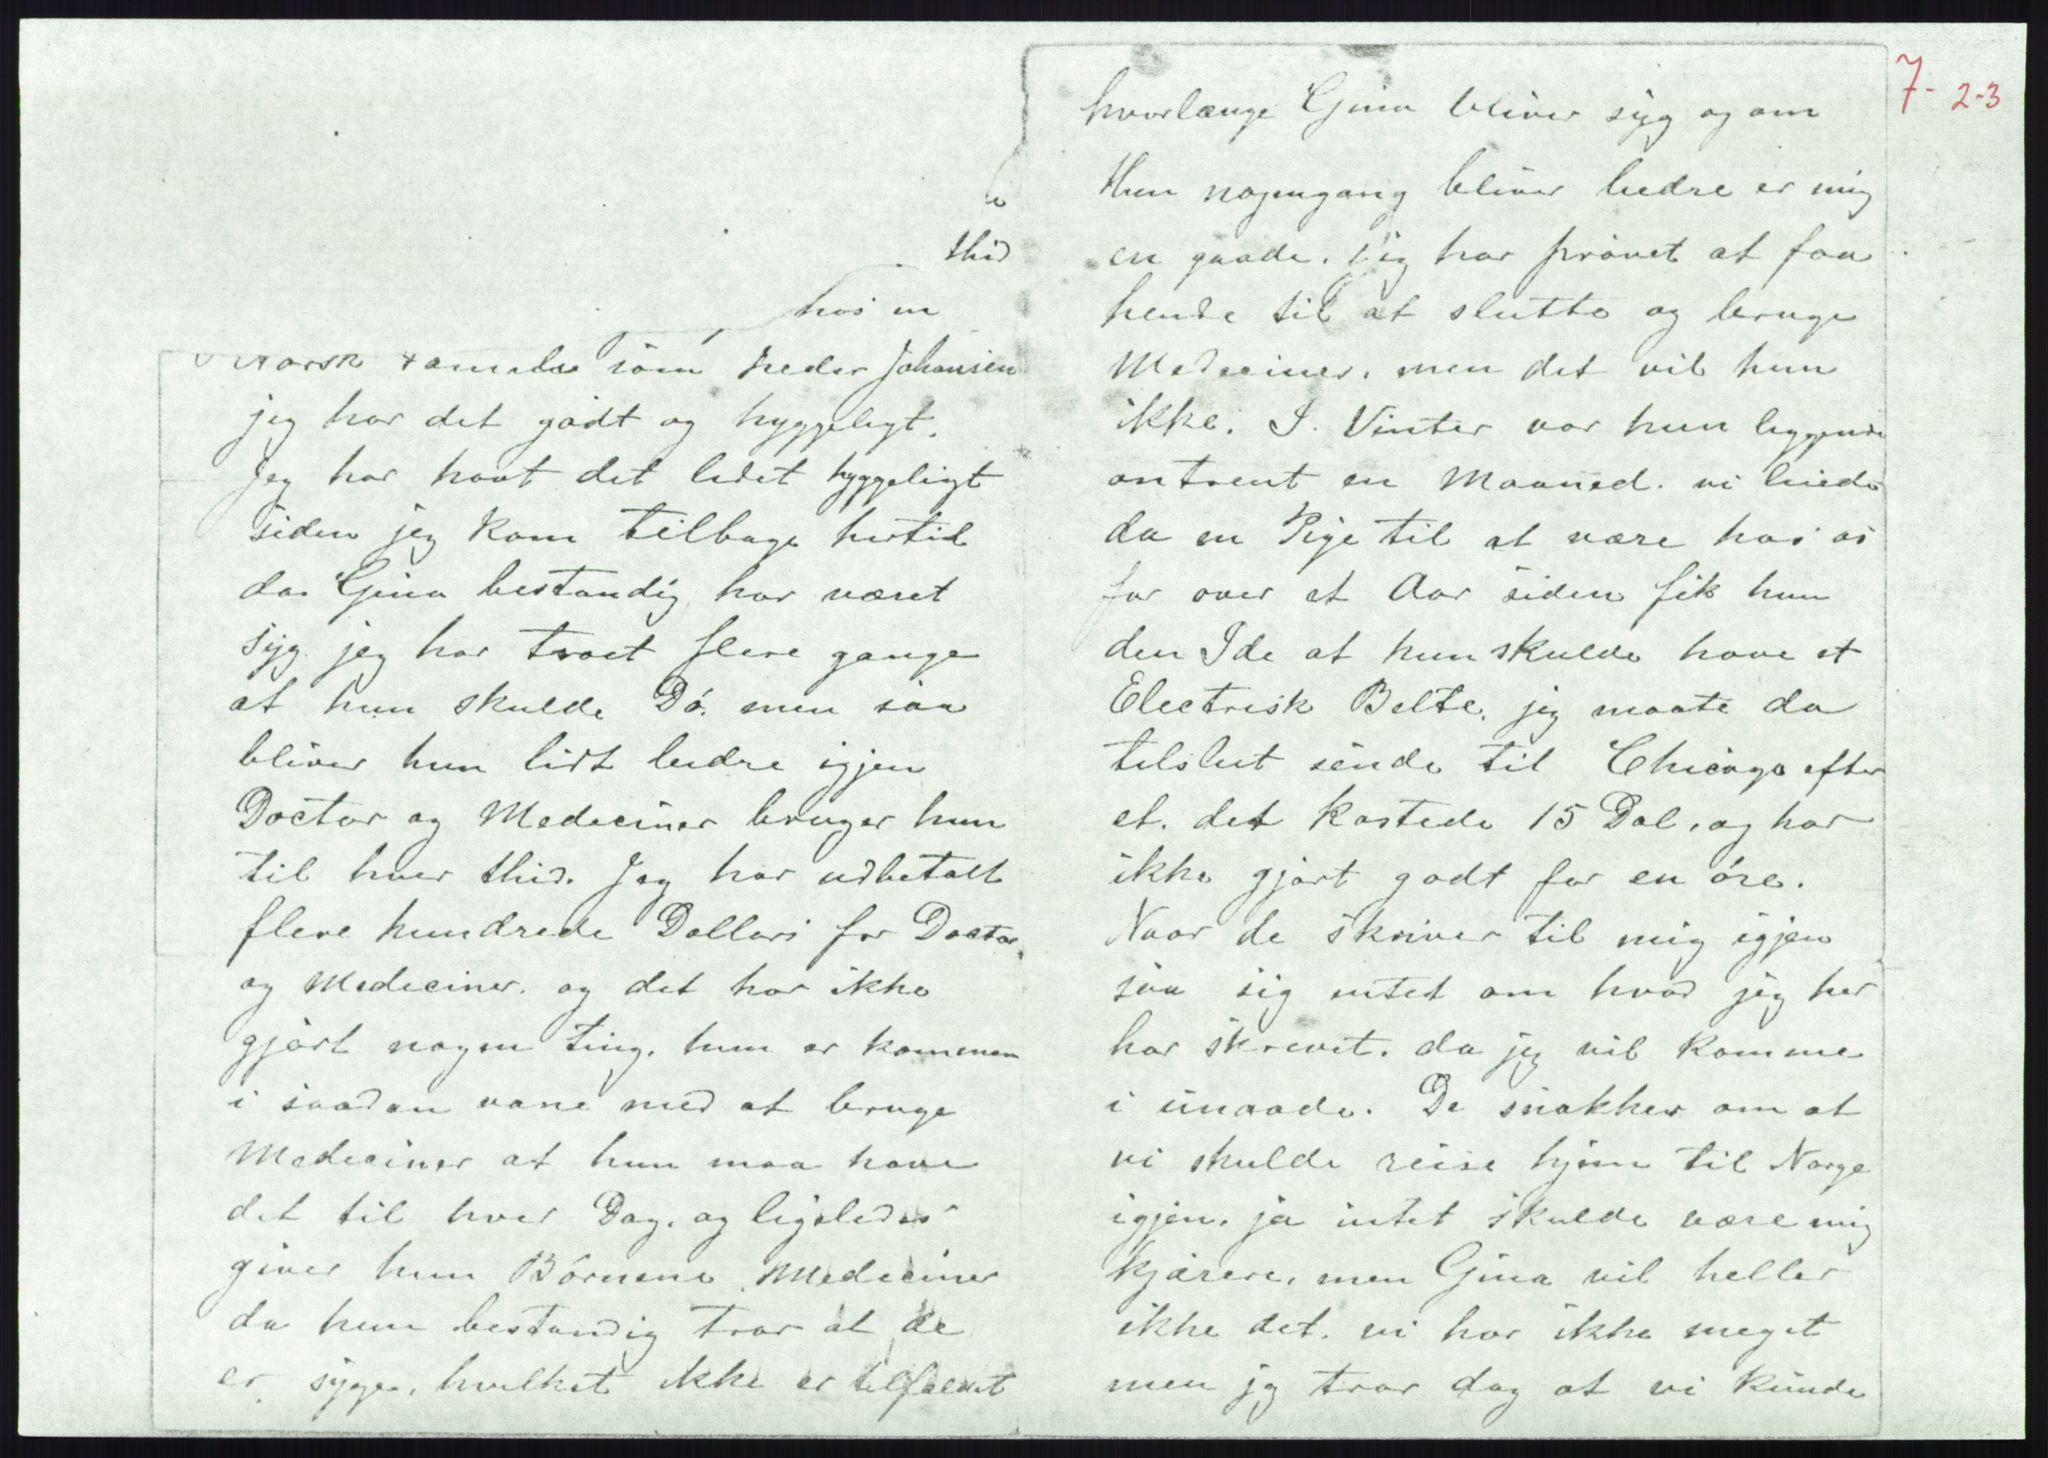 thid
hos en
Norsk Famelie som heder Johansen
jeg har det godt og hyggeligt.
Jeg har havt det lidet hyggeligt
siden jeg kom tilbage hertil
da Gina bestandig har været
syg. jeg har troet flere gange
at hun skulde Dø. men saa
bliver hun lidt bedre igjen
Doctor og Medeciner bruger hun
til hver thid. Jeg har udbetalt
flere hundrede Dollars for Doctor
og Medeciner. og det har ikke
gjort nogen ting. hun er kommen
i saadan vane med at bruge
Medeciner at hun maa have
det til hver Dag. og ligeledes
giver hun Børnene Medeciner
da hun bestandig tror at de
er syge, hvilket ikke er tilfeldet
7- 2-3
hvorlænge Gina bliver syg og om
Hun nogengang bliver bedre er mig
en gaade. jeg har prøvet at faa
hende til at slutte og bruge
Medeciner, men det vil hun
ikke. I Vinter var hun liggende
omtrent en Maaned. vi hiede
da en Pige til at være hos os
for over et Aar siden fik hun
den Ide at hun skulde have et
Electrisk Belte, jeg maate da
tilslut sende til Chicago efter
et. det kostede 15 Dol, og har
ikke gjort godt for en øre.
Naar de skriver til mig igjen
saa sig intet om hvad jeg her
har skrevet. da jeg vil komme
i unaade. De snakker om at
vi skulde reise hjem til Norge
igjen. ja intet skulde være mig
kjærere, men Gina vil heller
ikke det. vi har ikke meget
men jeg tror dog at vi kunde